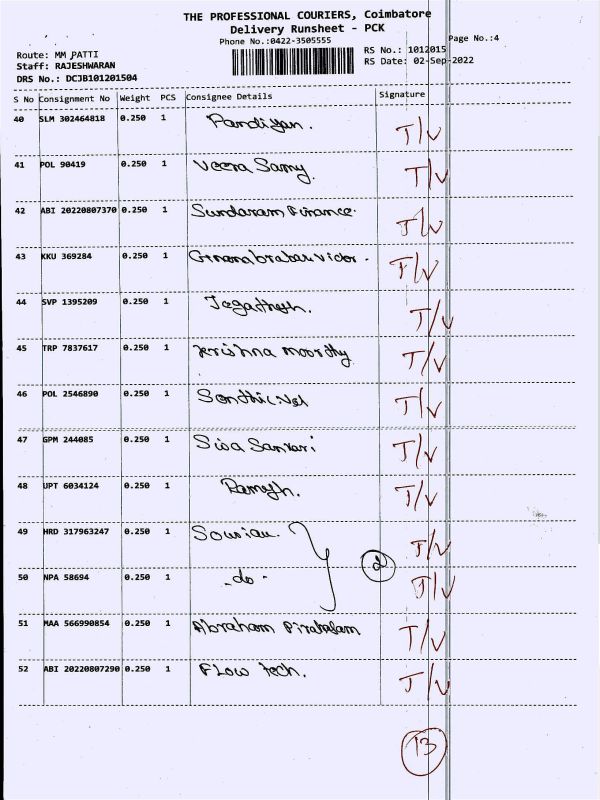 THE PROFESSIONAL COURIERS, Coimbatore
Delivery Runsheet - PCK
Phone No.:0422-3505555
Page No.:4
Route: MM PATTI
RS No.: 1012015
Staff: RAJESHWARAN
RS Date: 02-Sep-2022
DRS No.: DCJB101201504
S No Consignment No Weight PCS Consignee Details Signature
40 SLM 302464818 0.250 1 Pandiyan. T/V
41 POL 90419 0.250 1 Veera Samy. T/V
42 ABI 20220807370 0.250 1 Sundaram Finance. T/V
43 KKU 369284 0.250 1 T/V
44 SVP 1395209 0.250 1 Jegathesh. T/V
45 TRP 7837617 0.250 1 krishna moorthy T/V
46 POL 2546890 0.250 1 Senthil vel T/V
47 GPM 244085 0.250 1 Siva Sankari T/V
48 UPT 6034124 0.250 1 Ramesh. T/V
49 HRD 317963247 0.250 1 T/V
2
50 NPA 58694 0.250 1 - do - T/V
51 MAA 566990854 0.250 1 Abraham T/V
52 ABI 20220807290 0.250 1 Flow tech. T/V
13